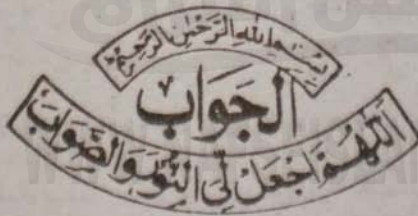 بِسْمِ اللهِ الرَّحْمٰنِ الرَّحِيْمِ
اَلجَوَابُ
اَللّٰهُمَّ اجْعَلْ لِّی النُّوْرَ وَالصَّوَابَ